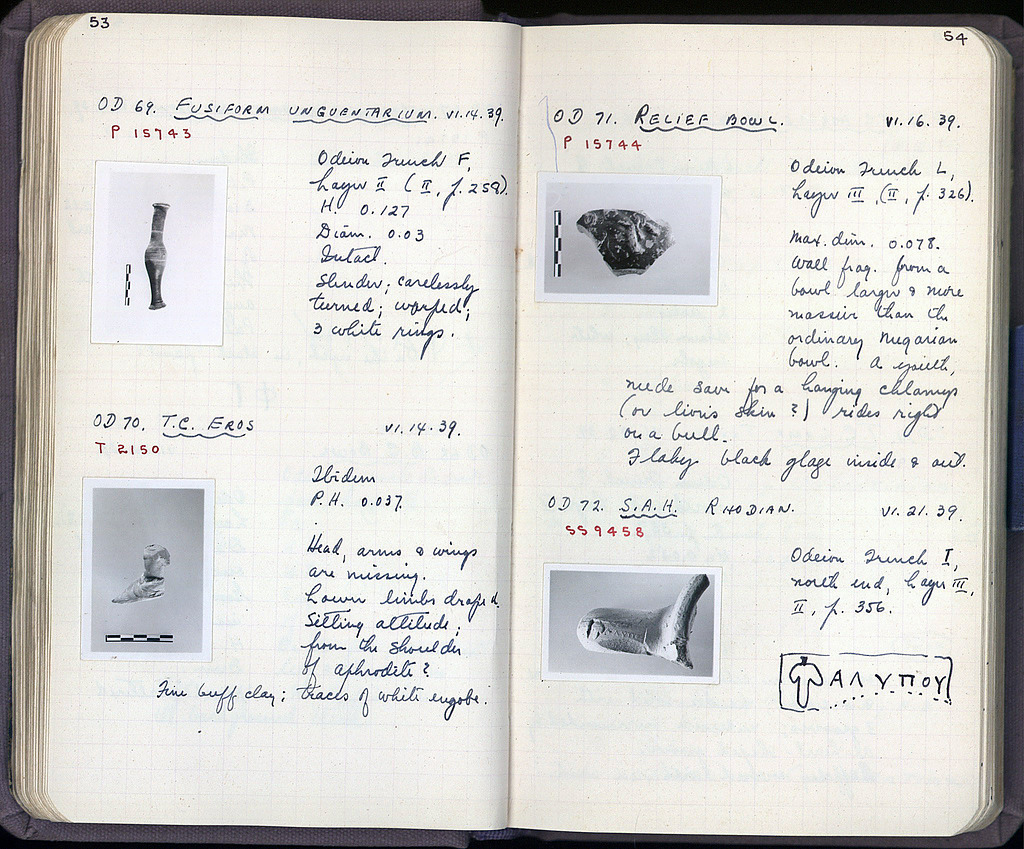 53
OD 69. FUSIFORM UNGUENTARIUM. VI.14.39.
P 15743
Odeion Trench F,
Layer II (II, p. 259).
H. 0.127
Diam. 0.03
Intact.
Slender; carelessly
turned; warped;
3 white rings.
OD 70. T.C. EROS VI.14.39.
T 2150
Ibidem
P.H. 0.037.
Head, arms & wings
are missing.
Lower limbs draped.
Sitting attitude;
from the shoulder
of Aphrodite?
Fine buff clay; traces of white engobe.
54
OD 71. RELIEF BOWL. VI.16.39.
P 15744
Odeion Trench L,
Layer III, (II, p. 326).
Max. dim. 0.078.
Wall frag. from a
bowl larger & more
massive than the
ordinary Megarian
bowl. A youth,
nude save for a hanging chlamys
(or lion's skin?) rides right
on a bull.
Flaky black glaze inside & out.
OD 72. S.A.H. RHODIAN. VI.21.39.
SS 9458
Odeion Trench I,
north end, Layer III,
II, p. 356.
ΑΛΥΠΟΥ